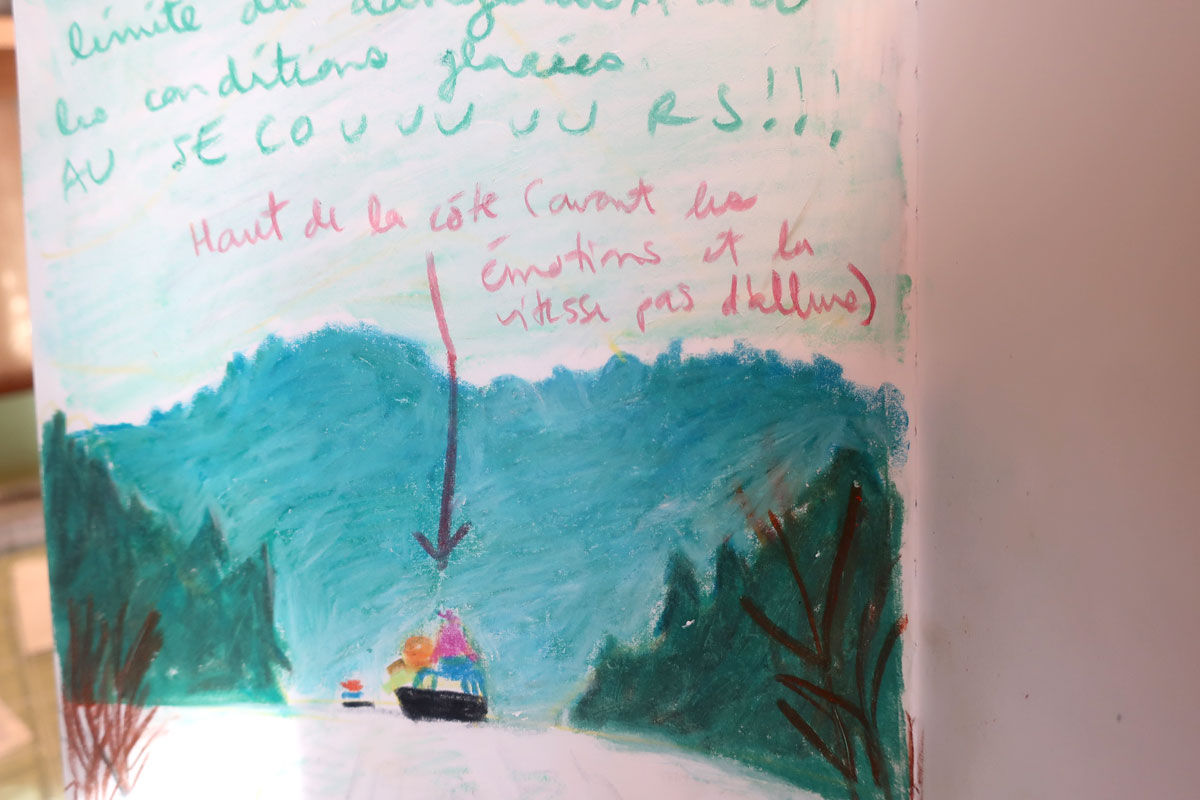 limite du dangereux
les conditions glacées.
AU SECOUUUUURS!!!
Haut de la côte (avant les
émotions et la
vitesse pas d'allure)